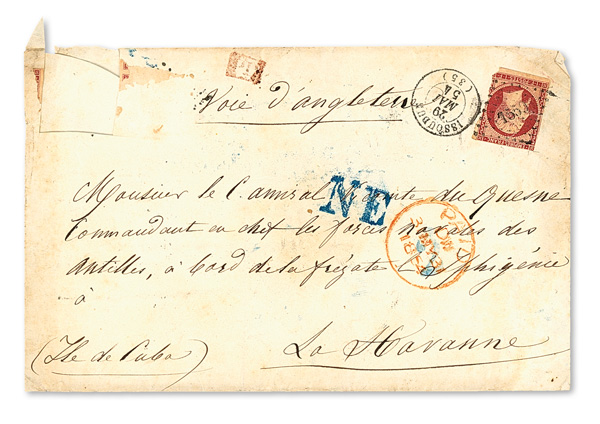 Voie d'angleterre
ISSOUDUN (35)
29
MAI
54
Monsieur le C. amiral Vicomte du Quesne
NE
Commandant en chef les forces navales des
PAID
antilles, à bord de la frégate L'Iphigénie
à
La Havanne
(Ile de Cuba)